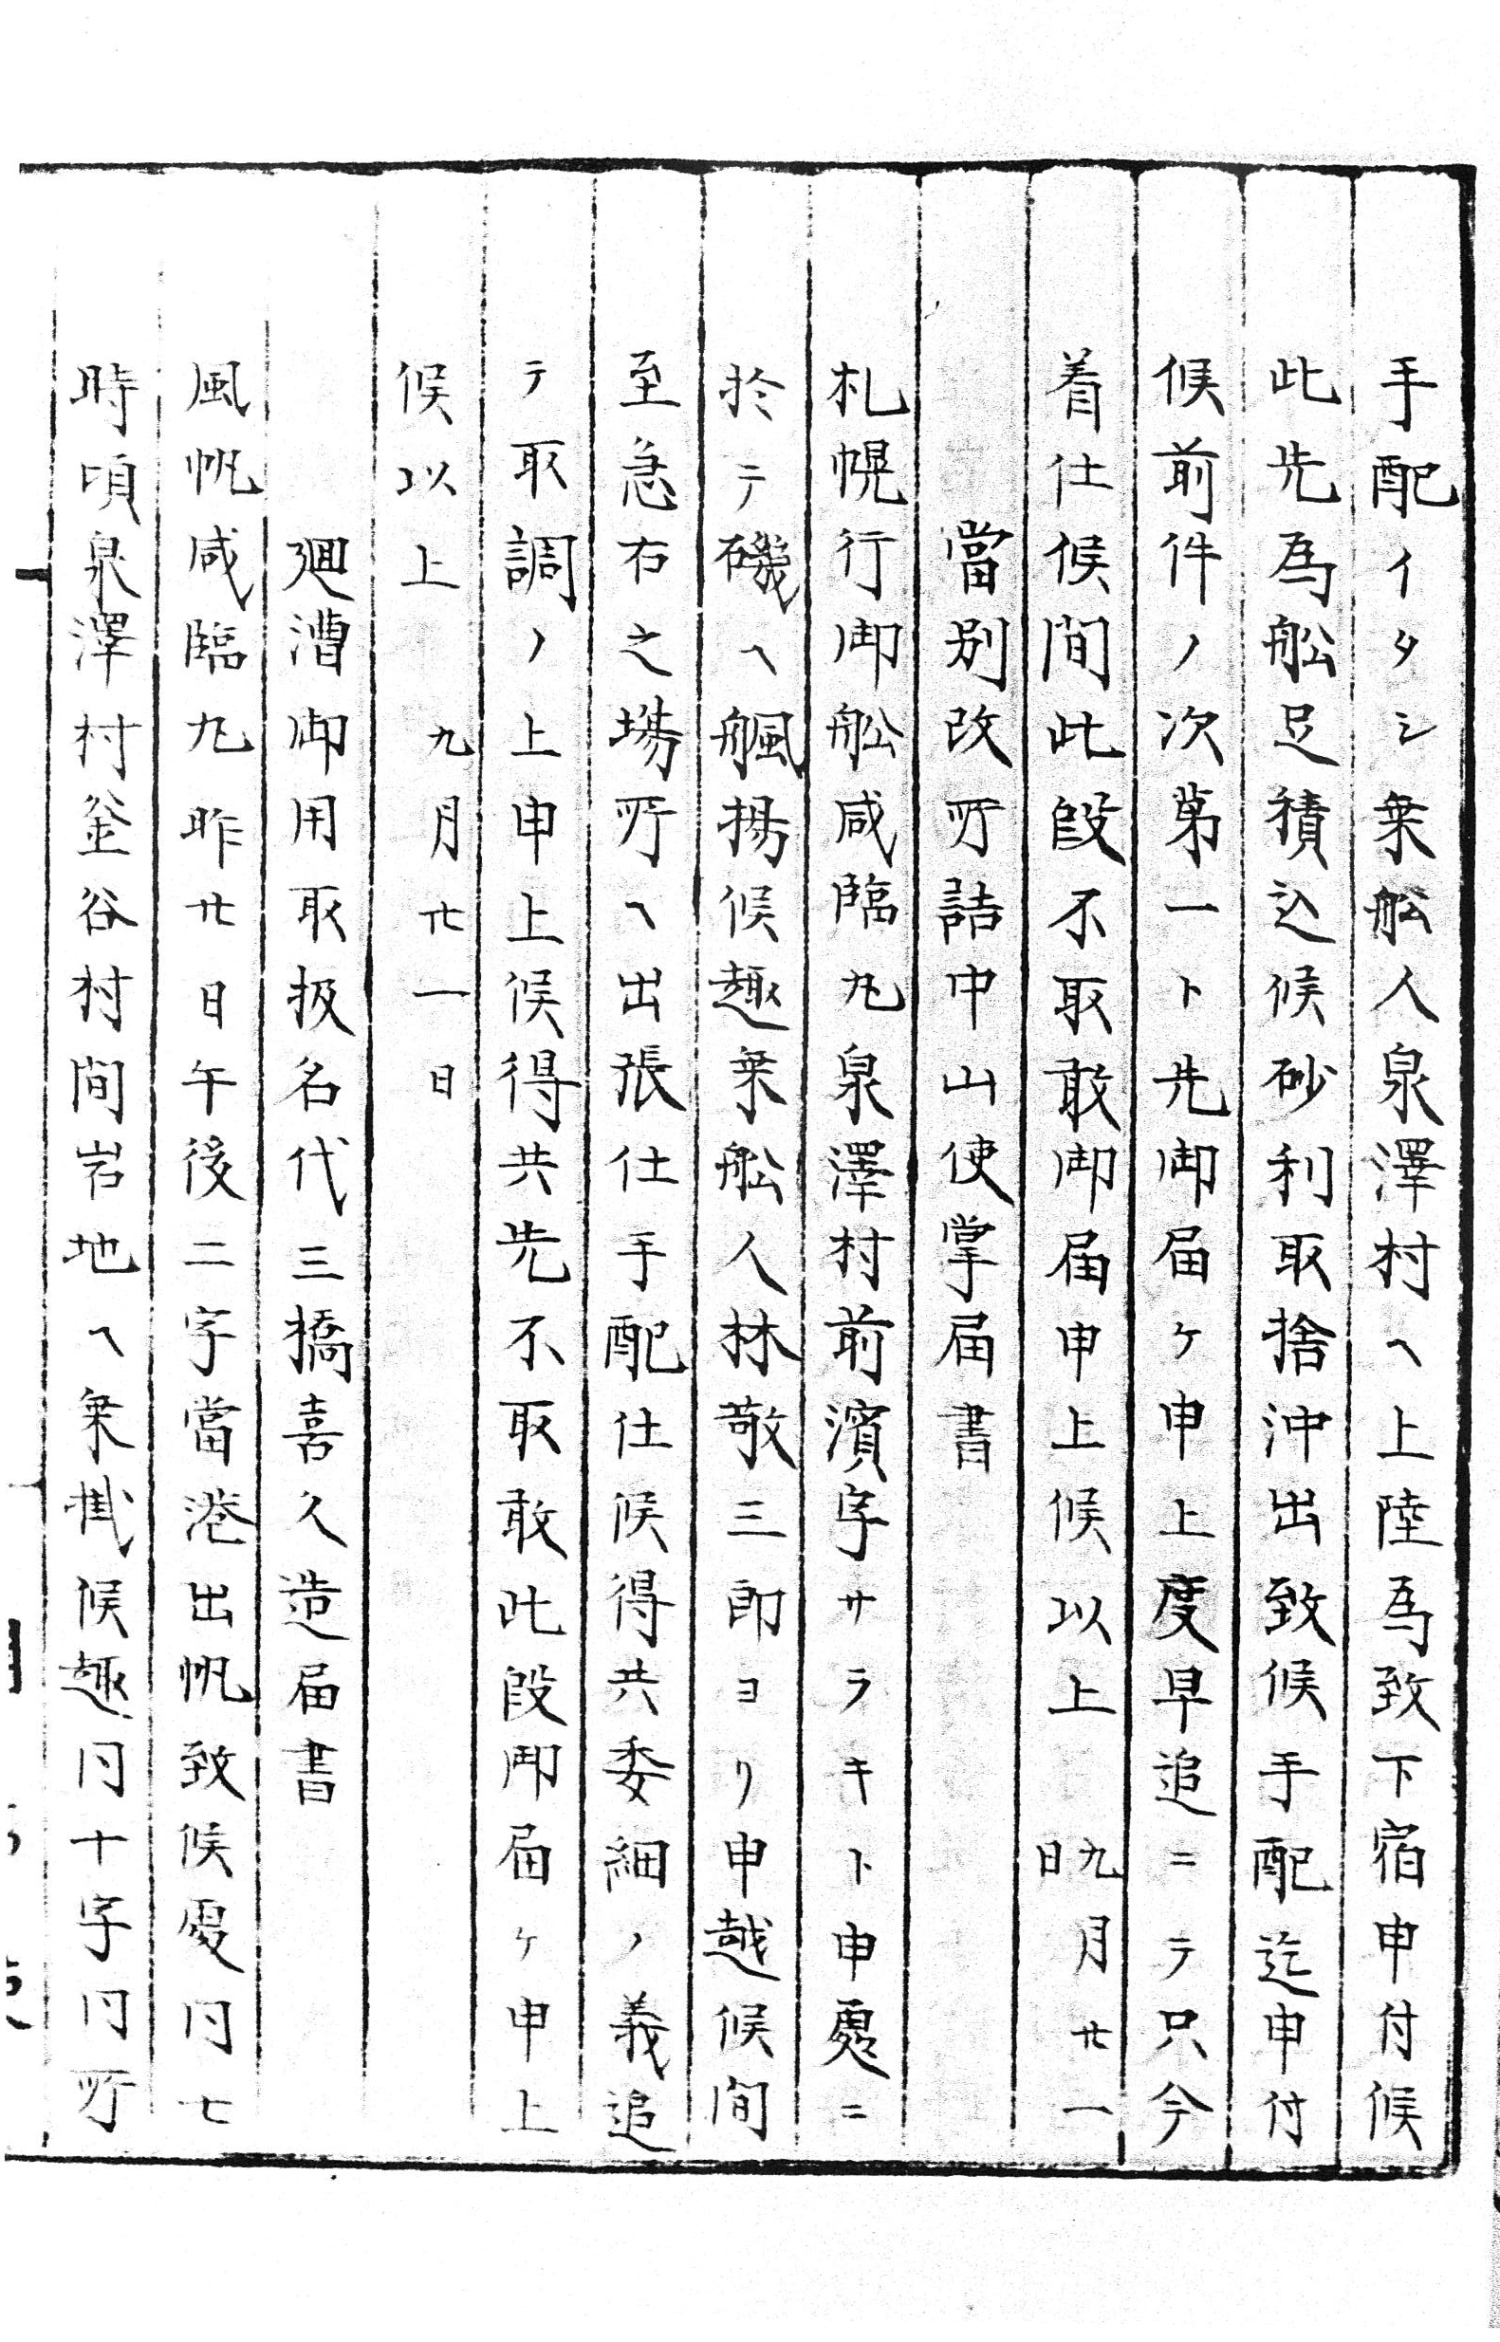 手配イタシ乗舩人泉澤村ヘ上陸為致下宿申付候
此先為舩足積込候砂利取捨沖出致候手配迄申付
候前件ノ次第一ト先御届ケ申上度早追ニテ只今
着仕候間此段不取敢御届申上候以上　九月廿一日
當別改所詰中山使掌届書
札幌行御舩咸臨丸泉澤村前濱字サラキト申處ニ
於テ磯ヘ颿揚候趣乗舩人林敬三郎ヨリ申越候間
至急右之場所ヘ出張仕手配仕候得共委細ノ義追
テ取調ノ上申上候得共先不取敢此段御届ケ申上
候以上　九月廿一日
廻漕御用取扱名代三橋喜久造届書
風帆咸臨丸昨廿日午後二字當港出帆致候處同七
時頃泉澤村釜谷村間岩地ヘ乗掛候趣同十字同所